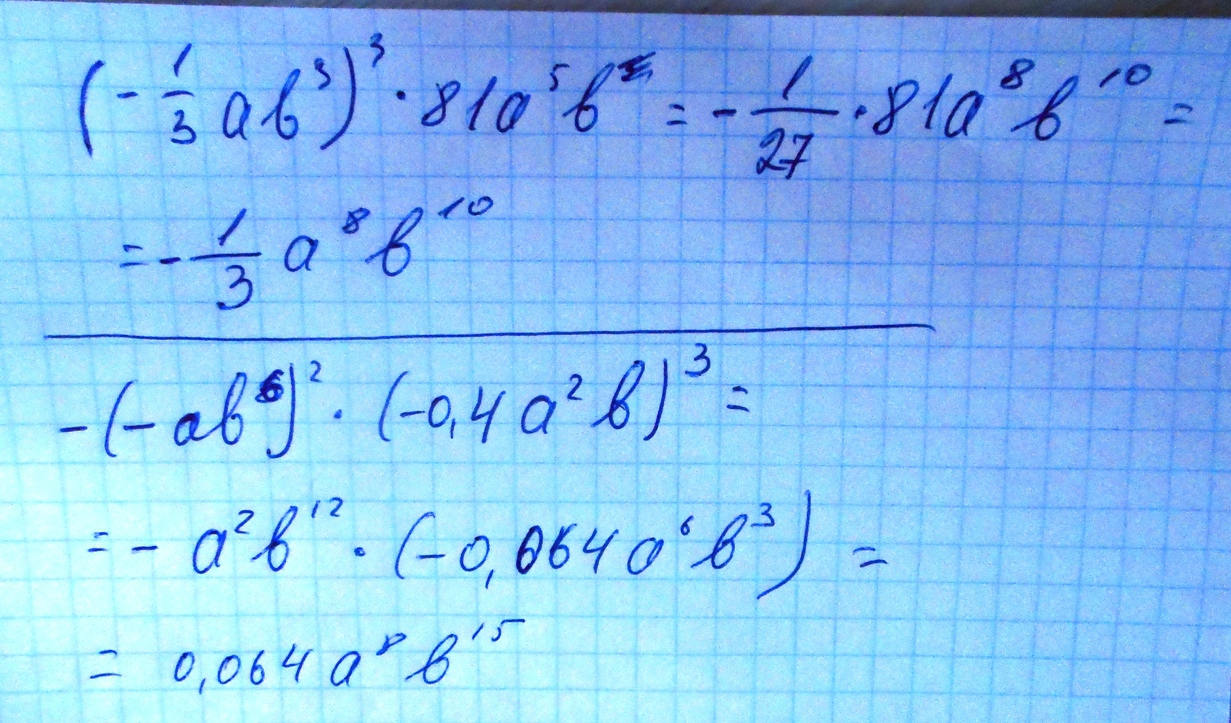 (-1/3 ab³)³ · 81a⁵b = -1/27 · 81a⁸b¹⁰ =
= -1/3 a⁸b¹⁰
-(-ab⁶)² · (-0,4a²b)³ =
= - a²b¹² · (-0,064a⁶b³) =
= 0,064a⁸b¹⁵